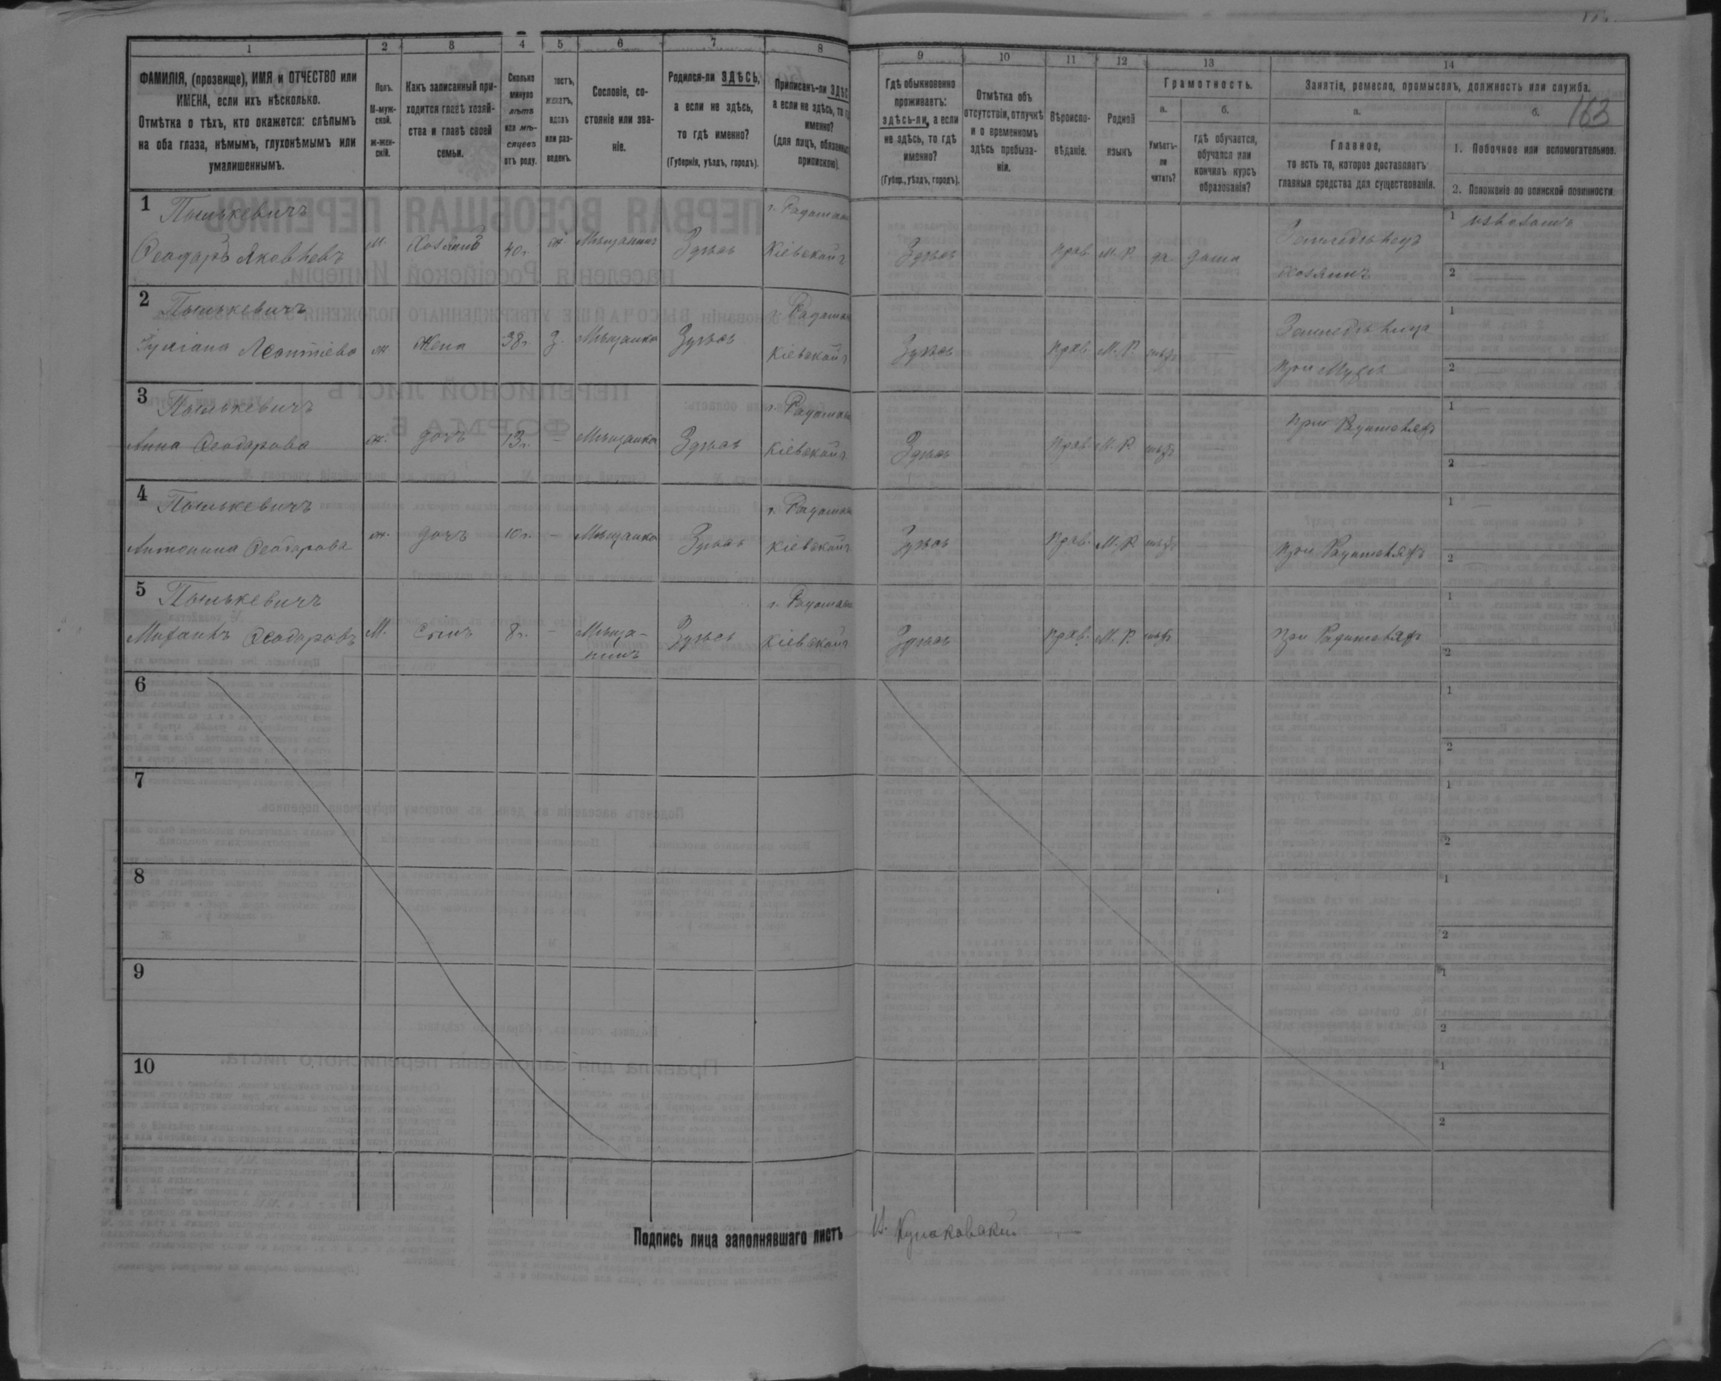 163
1
2
3
4
5
6
7
8
ФАМИЛІЯ, (прозвище), ИМЯ и ОТЧЕСТВО или
ИМЕНА, если ихъ нѣсколько.
Отмѣтка о тѣхъ, кто окажется: слѣпымъ
на оба глаза, нѣмымъ, глухонѣмымъ или
умалишеннымъ.
Полъ.
М-муж-
ской.
ж-жен-
скій.
Какъ записанный при-
ходится главѣ хозяй-
ства и главѣ своей
семьи.
Сколько
минуло
лѣтъ
или мѣ-
сяцевъ
отъ роду.
или раз-
веденъ.
Сословіе, со-
стояніе или зва-
ніе.
Родился-ли ЗДѢСЬ,
а если не здѣсь,
то гдѣ именно?
(Губернія, уѣздъ, городъ).
Приписанъ-ли
а если не здѣсь, то
именно?
(для лицъ,
припискою).
9
10
11
12
13
14
Гдѣ обыкновенно
проживаетъ:
здѣсь-ли, а если
не здѣсь, то гдѣ
именно?
(Губер., уѣздъ, городъ).
Отмѣтка объ
отсутствіи, отлучкѣ
и о временномъ
здѣсь пребыва-
ніи.
Вѣроиспо-
вѣданіе.
Родной
языкъ
Грамотность.
а.
Умѣетъ-
ли
читать?
б.
гдѣ обучается,
обучался или
кончилъ курсъ
образованія?
Занятіе, ремесло, промыселъ, должность или служба.
а.
Главное,
то есть то, которое доставляетъ
главныя средства для существованія.
б.
1. Побочное или вспомогательное.
2. Положеніе по воинской повинности
1
Пышкевичъ
Ѳеодоръ Яковлевъ
м.
хозяинъ
40 г.
ж.
Мѣщанинъ
Здѣсь
Кіевской г.
Здѣсь
прав.
М. Р.
да
дома
Земледѣлецъ
хозяинъ
1 извозомъ
2
2
Пышкевичъ
Леонтіева
ж
жена
38 г.
З.
Мѣщанка
Здѣсь
Кіевской г.
Здѣсь
прав.
М. Р.
нѣтъ
при мужѣ
1
2
3
Пышкевичъ
Анна Ѳеодорова
ж.
дочь
13 г.
Мѣщанка
Здѣсь
Кіевской г.
Здѣсь
прав.
М. Р.
нѣтъ
при родителяхъ
1
2
4
Пышкевичъ
Антонина Ѳеодорова
ж.
дочь
10 г.
Мѣщанка
Здѣсь
Кіевской г.
Здѣсь
прав.
М. Р.
нѣтъ
при родителяхъ
1
2
5
Пышкевичъ
Михаилъ Ѳеодоровъ
М.
сынъ
8 г.
Мѣща-
нинъ
Здѣсь
Кіевской г.
Здѣсь
прав.
М. Р.
нѣтъ
при родителяхъ
1
2
6
1
2
7
1
2
8
1
2
9
1
2
10
1
2
Подпись лица заполнявшаго листъ